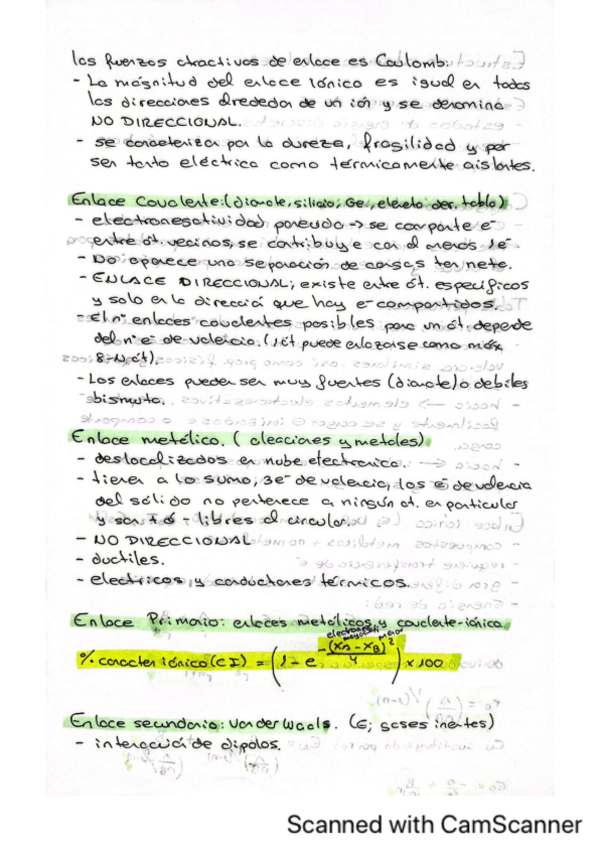 las fuerzas atractivas de enlace es Coulomb:
- La magnitud del enlace iónico es igual en todas
las direcciones alrededor de un ión y se denomina
NO DIRECCIONAL.
- se caracteriza por la dureza, fragilidad y por
ser tanto eléctrica como térmicamente aislantes.
Enlace Covalente: (diamante, silicio, Ge, elemto der. tabla)
- electronegatividad parecida → se comparte e⁻
entre át. vecinos, se contribuye con al menos 1e⁻
- No aparece una separación de cargas ter neta.
- ENLACE DIRECCIONAL; existe entre át. específicos
y solo en la dirección que hay e⁻ compartidos.
- El nº enlaces covalentes posibles para un át. depende
del nº e⁻ de valencia. (1 át puede enlazarse como máx
8-N át).
- Los enlaces pueden ser muy fuertes (diamante) o debiles
bismuto.
Enlace metálico. (aleaciones y metales)
- deslocalizados en nube electronica.
- tienen a lo sumo, 3e⁻ de valencia, los e⁻ de valencia
del sólido no pertenece a ningún at. en particular
y son + ó - libres al circular.
- NO DIRECCIONAL
- ductiles.
- electricos y conductores térmicos.
Enlace Primario: enlaces metálicos y covalente-iónica.
% caracter iónico (CI) = (1 - e^(-(XA - XB)²/4)) × 100
Enlace secundario: van der Waals. (E; gases inertes)
- interacción de dipolos.
Scanned with CamScanner